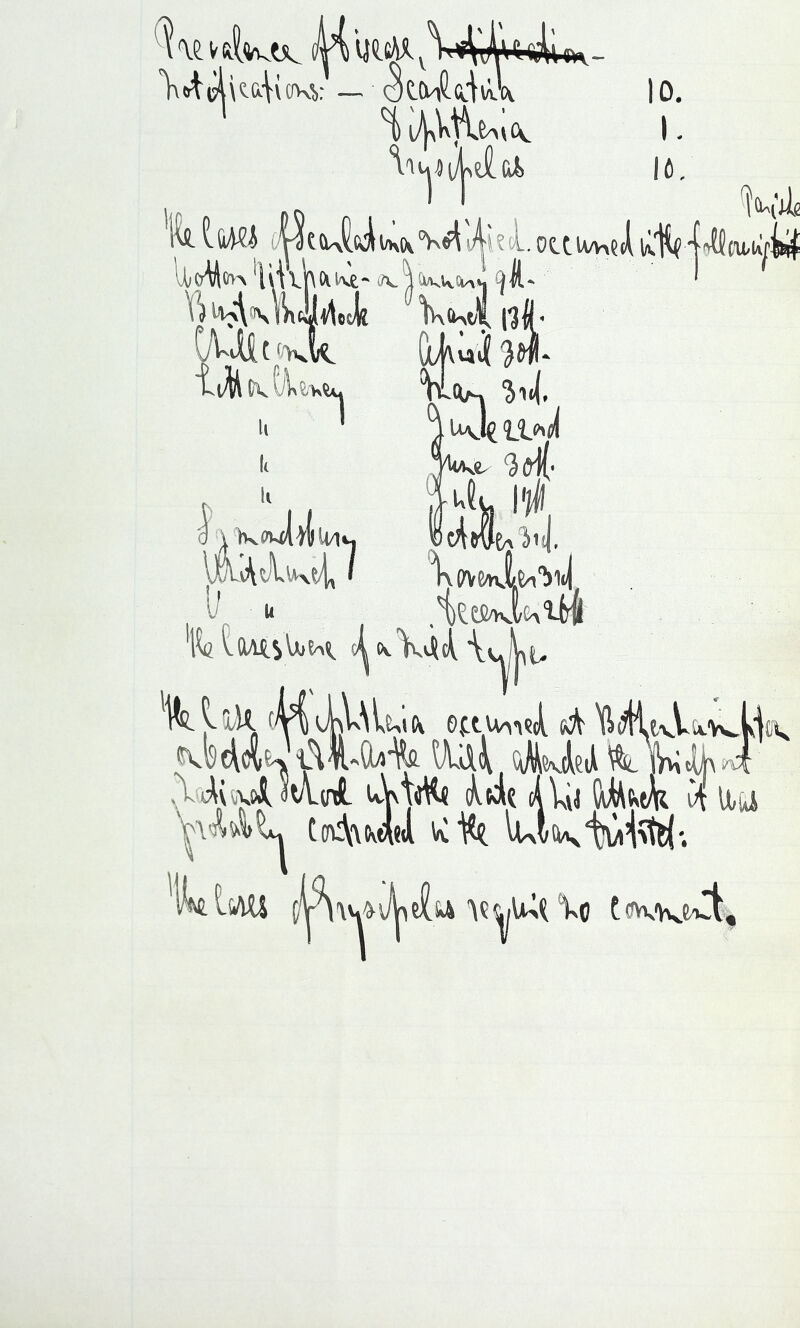 Prevalence of Disease, Notification -
Notifications: — Scarlatina 10.
Diphtheria 1.
Erysipelas 10.
Parishe
The Cases of Scarlatina notified. occurred in the following
Wotton Fitzpaine - on January 9th -
Burton Bradstock March 13th.
Chillcombe April 30th -
Litton Cheney May 3rd.
" June 22nd
" June 30th.
" July 17th
Symondsbury October 3rd.
Whitchurch November 3rd
" December 26th
The Cases were of a Mild type.
The Case of Diphtheria occurred at Bothenhampton
on October 28th - As the Child attended the Bridport
National School up to the date of his Attack it was
probably contracted in the Urban District:
The Cases of Erysipelas require no comment.